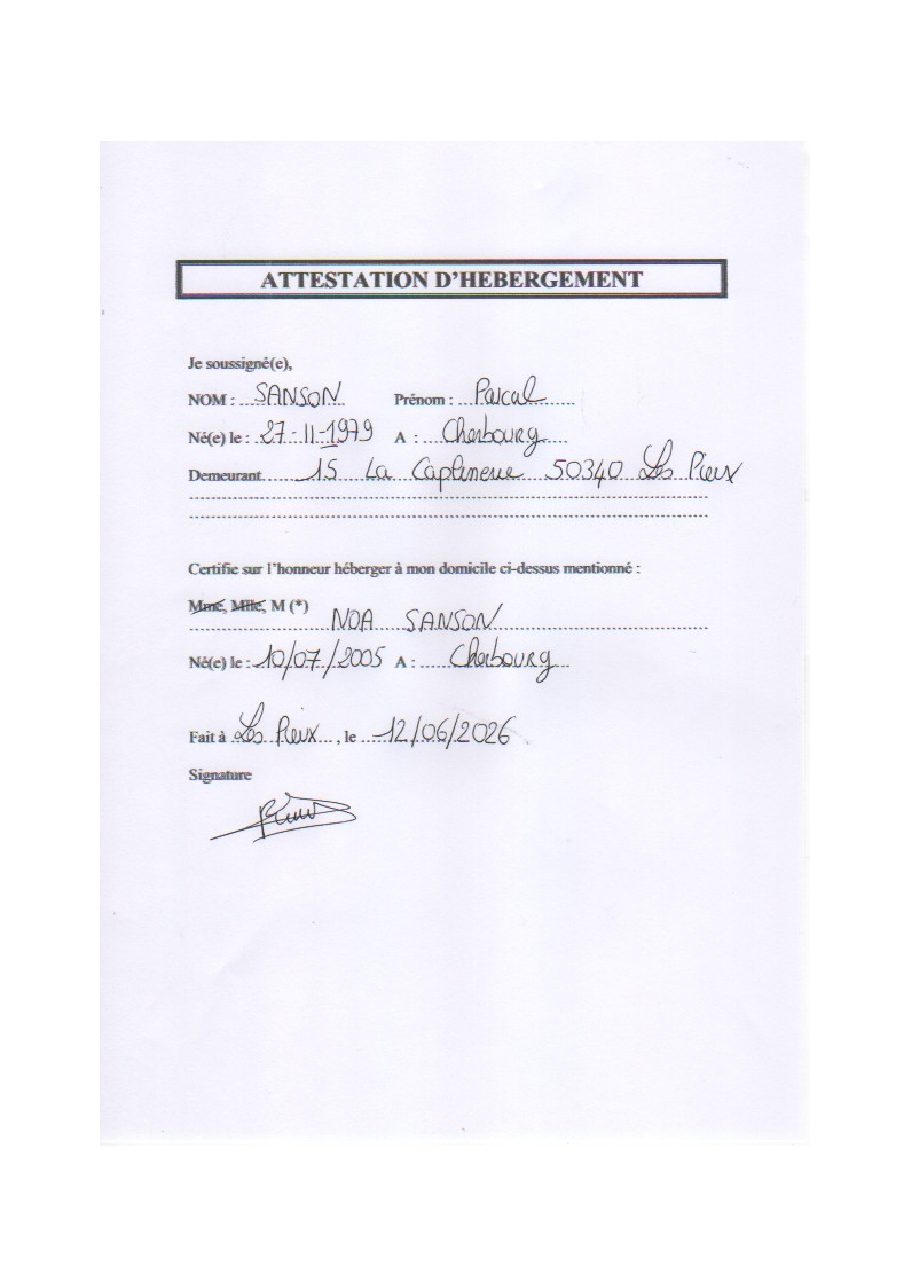 ATTESTATION D'HEBERGEMENT
Je soussigné(e),
NOM : SANSON Prénom : Pascal
Né(e) le : 27-11-1979 A : Cherbourg
Demeurant 15 La 50340 Les Pieux
Certifie sur l'honneur héberger à mon domicile ci-dessus mentionné :
Mme, Mlle, M (*)
NOA SANSON
Né(e) le : 10/07/2005 A : Cherbourg
Fait à Les Pieux, le 12/06/2026
Signature